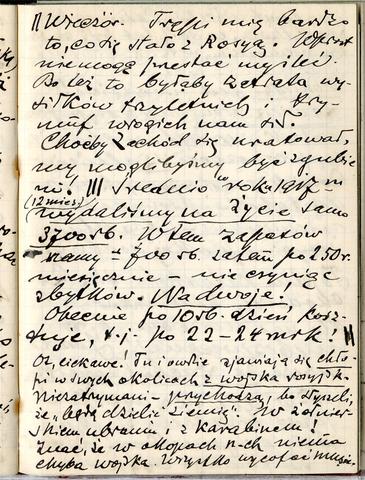 || Wieczór. Trapi mię bardzo
to, co się stało z Rosyą. Wprost
nie mogę przestać myśleć.
Bo też to byłaby zatrata wy-
siłków trzyletnich i try-
umf wrogich nam sił.
Choćby Zachód się uratował,
my moglibyśmy być zgubie-
ni! ||| Średnio w roku 1917-m
(12 mies.)
wydaliśmy na życie samo
3700 rb. W tem zapasów
mamy = 700 rb. zatem po 250 r.
miesięcznie – nie czyniąc
zbytków. Na dwoje!
Obecnie po 10 rb. dzień kosz-
tuje, t.j. po 22–24 mrk! ||
Ot, ciekawe! Tu i owdzie zjawiają się chło-
pi w swych okolicach z wojska rosyjsk.
Niezatrzymani – przychodzą, bo słyszeli,
że „będą dzielić ziemię”. W żołnier-
skiem ubraniu i z karabinem!
Znać, że w okopach n-ch niema
chyba wojska. Wszystko wycofać